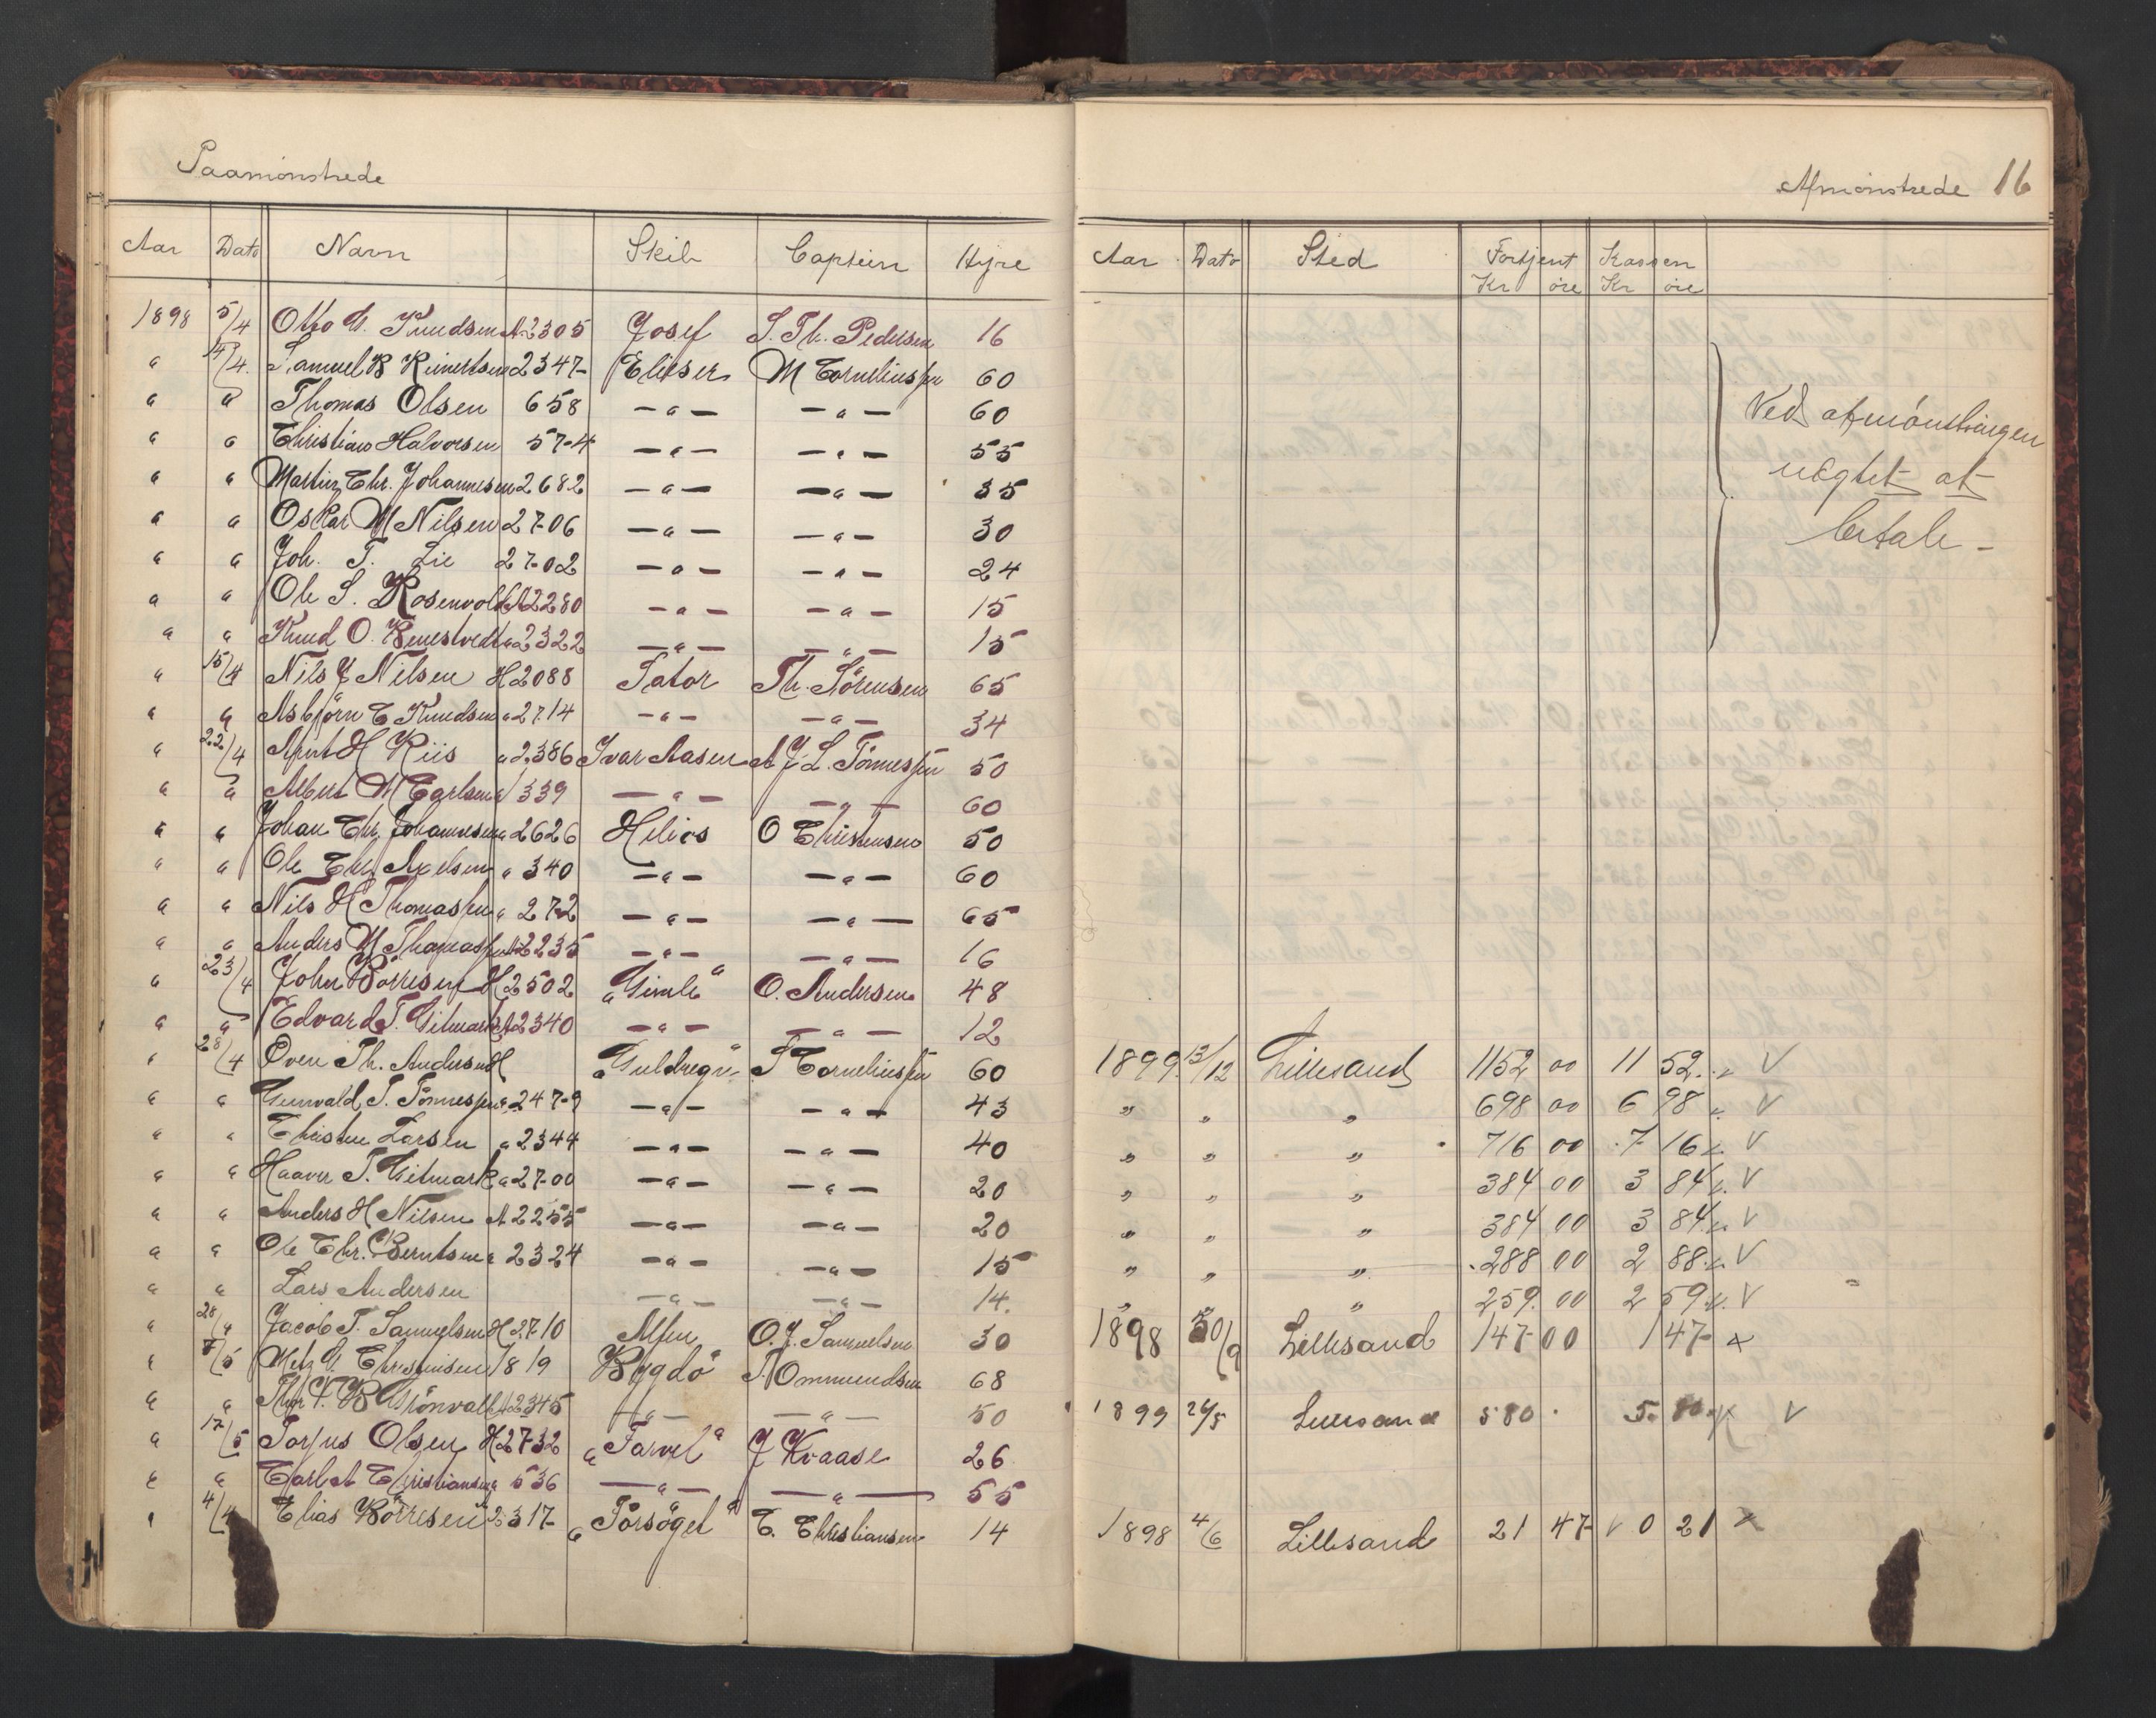 Paamönstrede
Afmönstrede 16
Aar Dato Navn Skib Captein Hyre Aar Dato Sted Fortjent Kassen
Kr öre Kr öre
1898 5/4 Otto G. Knudsen A 2305 Josef S. Th. Pedersen 16
" 14/4 Samuel B Reinertsen 2347 Elieser M Corneliussen 60
" " Thomas Olsen 658 — " — — " — 60
" " Christian Halvorsen 574 — " — — " — 55
" " Martin Chr. Johannesen 2682 — " — — " — 35
" " Oskar M Nilsen 2706 — " — — " — 30
" " Joh. T. Lie 2702 — " — — " — 24
" " Ole S. Rosenvold A 2280 — " — — " — 15
" " Knud O. " 2322 — " — — " — 15
Ved afmönstringen
nægtet at
betale –
" 15/4 Nils J Nilsen H 2088 Fator Th. Sörensen 65
" " Asbjörn C Knudsen " 2714 — " — — " — 34
" 22/4 H Riis " 2386 Ivar Aasen A J. L. Tönnessen 50
" " Albert M Carlsen " 1339 — " — — " — 60
" " Johan Chr. Johannesen " 2626 Helios O Christensen 50
" " Ole Chr. Axelsen " 340 — " — — " — 60
" " Nils H Thomassen " 272 — " — — " — 65
" " Anders M Thomassen A 2235 — " — — " — 16
" 23/4 John Börresen H 2502 "Gimle" O. Andersen 48
" " Edvard T. Gitmark A 2340 — " — — " — 12
" 28/4 Oven Th. Andersen H "Guldregn" F Corneliussen 60 1899 13/12 Lillesand 1152 00 11 52 V
" " Gunvald T. Tönnessen " 2479 — " — — " — 43 " " " 698 00 6 98 V
" " Christen Larsen " 2344 — " — — " — 40 " " " 716 00 7 16 V
" " Haaver T. Gitmark " 2700 — " — — " — 20 " " " 384 00 3 84 V
" " Anders H Nilsen A 2255 — " — — " — 20 " " " 384 00 3 84 V
" " Ole Chr. Berntsen " 2324 — " — — " — 15 " " " 288 00 2 88 V
" " Lars Andersen — " — — " — 14 " " 259 00 2 59 V
" 28/4 Jacob T. Samuelsen H 2710 Alfen O. J. Samuelsen 30 1898 30/9 Lillesand 147 00 1 47 x
" 7/5 1819 Bygdö" T Ommundsen 68
" " A 2345 — " — — " — 50 1899 26/5 Lillesand 580 5 80 V
" 17/5 Torjus Olsen H 2732 "Farvel" J Kraase 26
" " Carl Christiansen " 536 — " — — " — 55
" 4/4 Elias Börresen 2317 "Forsöget" C. Christiansen 14 1898 4/6 Lillesand 21 47 0 21 x